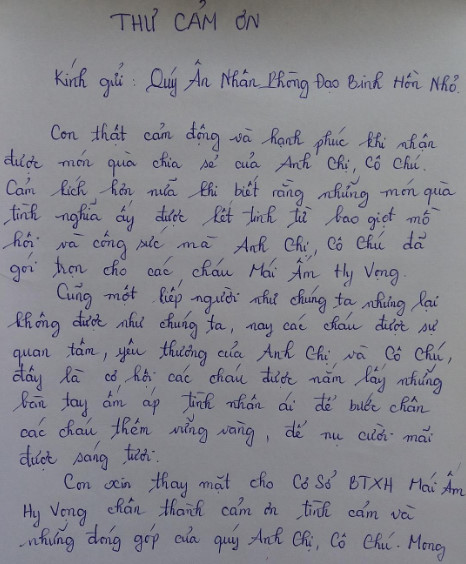 THƯ CẢM ƠN
Kính gửi: Quý Ân Nhân Phòng Đạo Binh Hồn Nhỏ.
Con thật cảm động và hạnh phúc khi nhận
được món quà chia sẻ của Anh Chị, Cô Chú.
Cảm kích hơn nữa khi biết rằng những món quà
tình nghĩa ấy được kết tinh từ bao giọt mồ
hôi và công sức mà Anh Chị, Cô Chú đã
gói trọn cho các cháu Mái Ấm Hy Vọng.
Cũng một kiếp người như chúng ta nhưng lại
không được như chúng ta, nay các cháu được sự
quan tâm, yêu thương của Anh Chị và Cô Chú,
đây là cơ hội các cháu được nắm lấy những
bàn tay ấm áp tình nhân ái để bước chân
các cháu thêm vững vàng, để nụ cười mãi
được sáng tươi.
Con xin thay mặt cho Cơ Sở BTXH Mái Ấm
Hy Vọng chân thành cảm ơn tình cảm và
những đóng góp của quý Anh Chị, Cô Chú. Mong